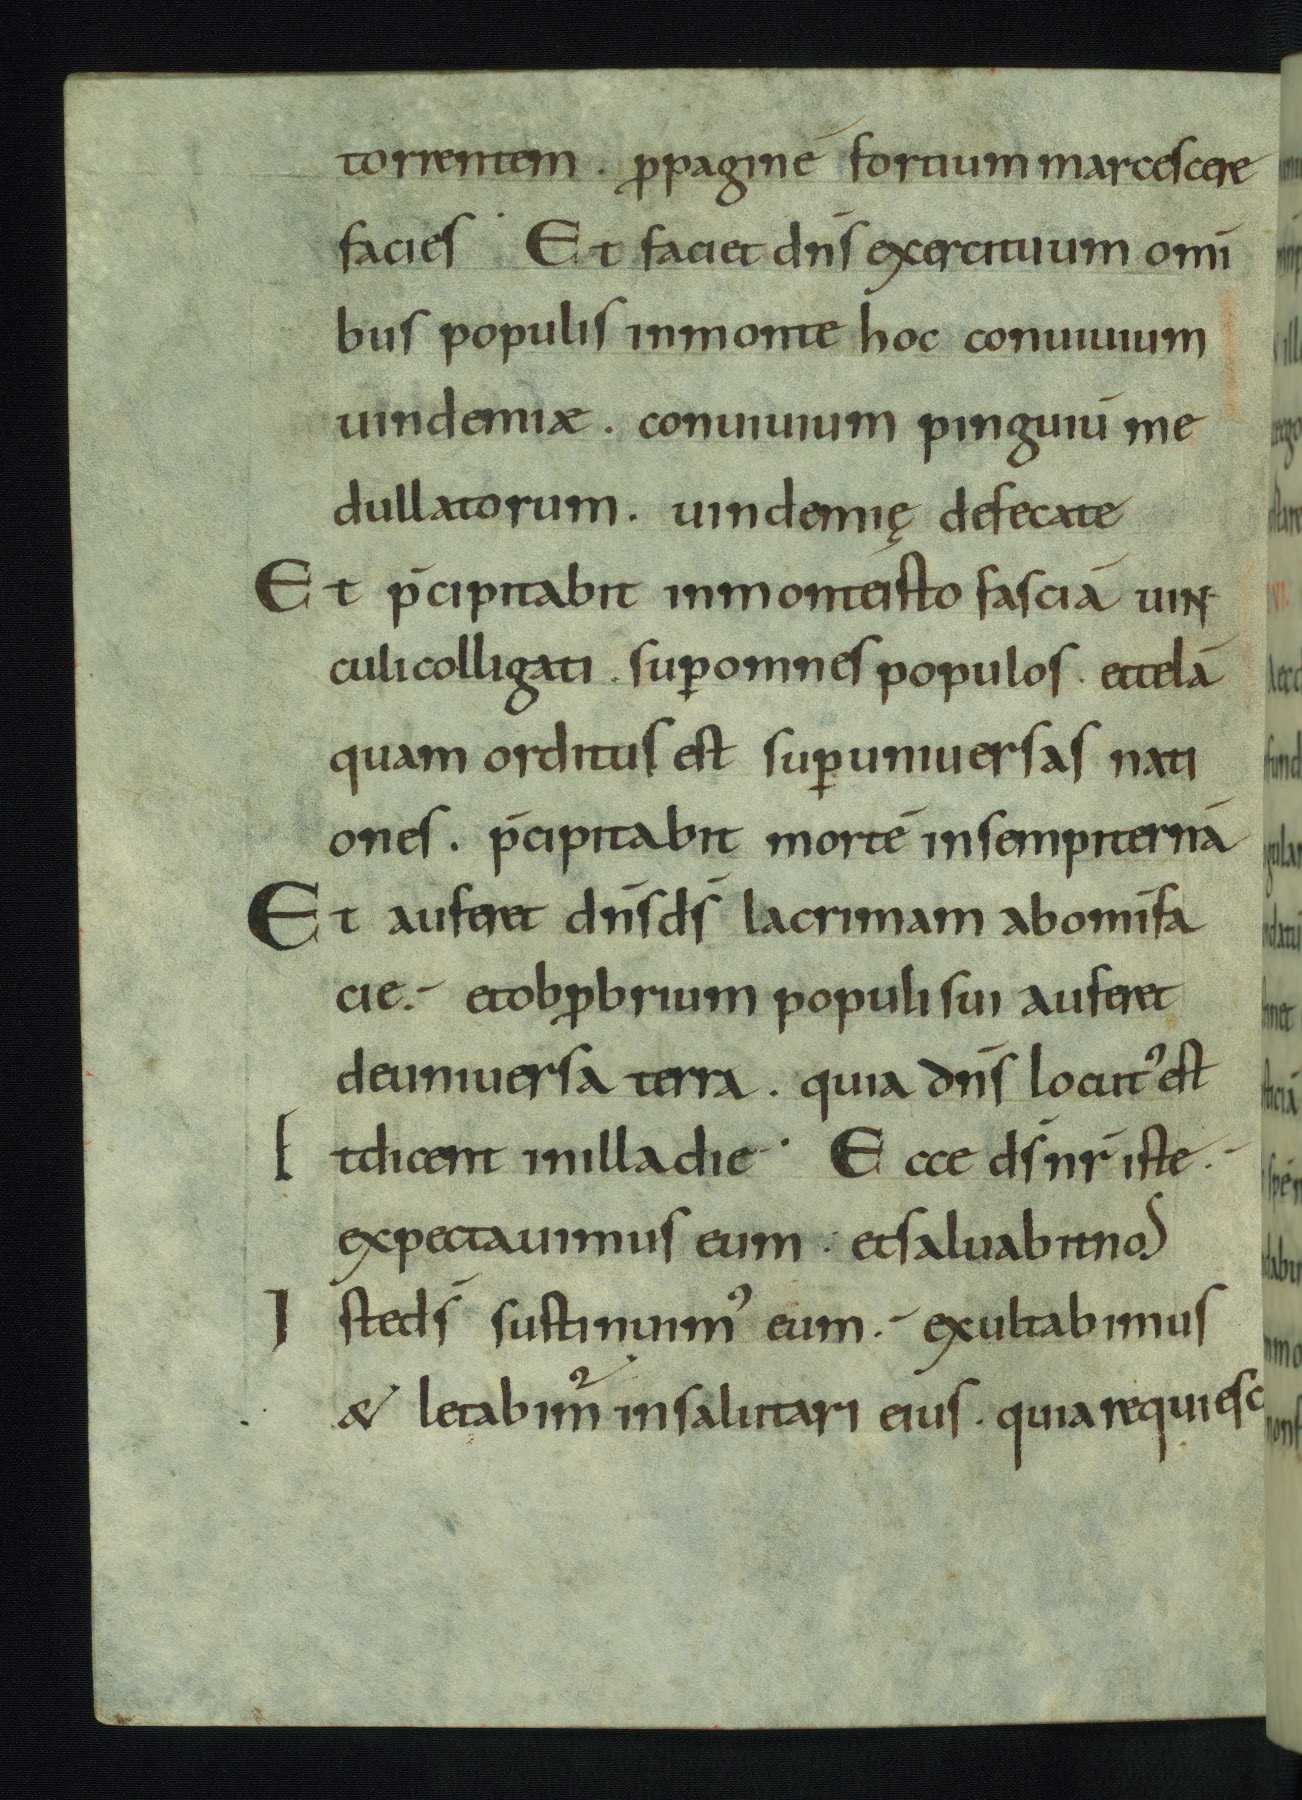 torrentem . ꝓpaginē fortium marcescere
facies · Et faciet dn̄s exercituum omī
bus populis inmonte hoc conuiuium
uindemiæ . conuiuium pinguiū me
dullatorum . uindemię defecate
Et p̄cipitabit inmonteisto fasciā uin
culi colligati . suꝑomnes populos . ettelā
quam orditus est suꝑuniuersas nati
ones . p̄cipitabit mortē insempiternā
Et auferet dn̄s ds̄ lacrimam abomīfa
cie .- etobꝓbrium populi sui auferet
deuniuersa terra . quia dn̄s locutꝰ est
Et dicent inilla die · Ecce ds̄ nr̄ iste .-
expectauimus eum . etsaluabitnos
Iste ds̄ sustinuimꝰ eum .- exultabimus
& letabim᷑ insalutari eius . quia requiesc